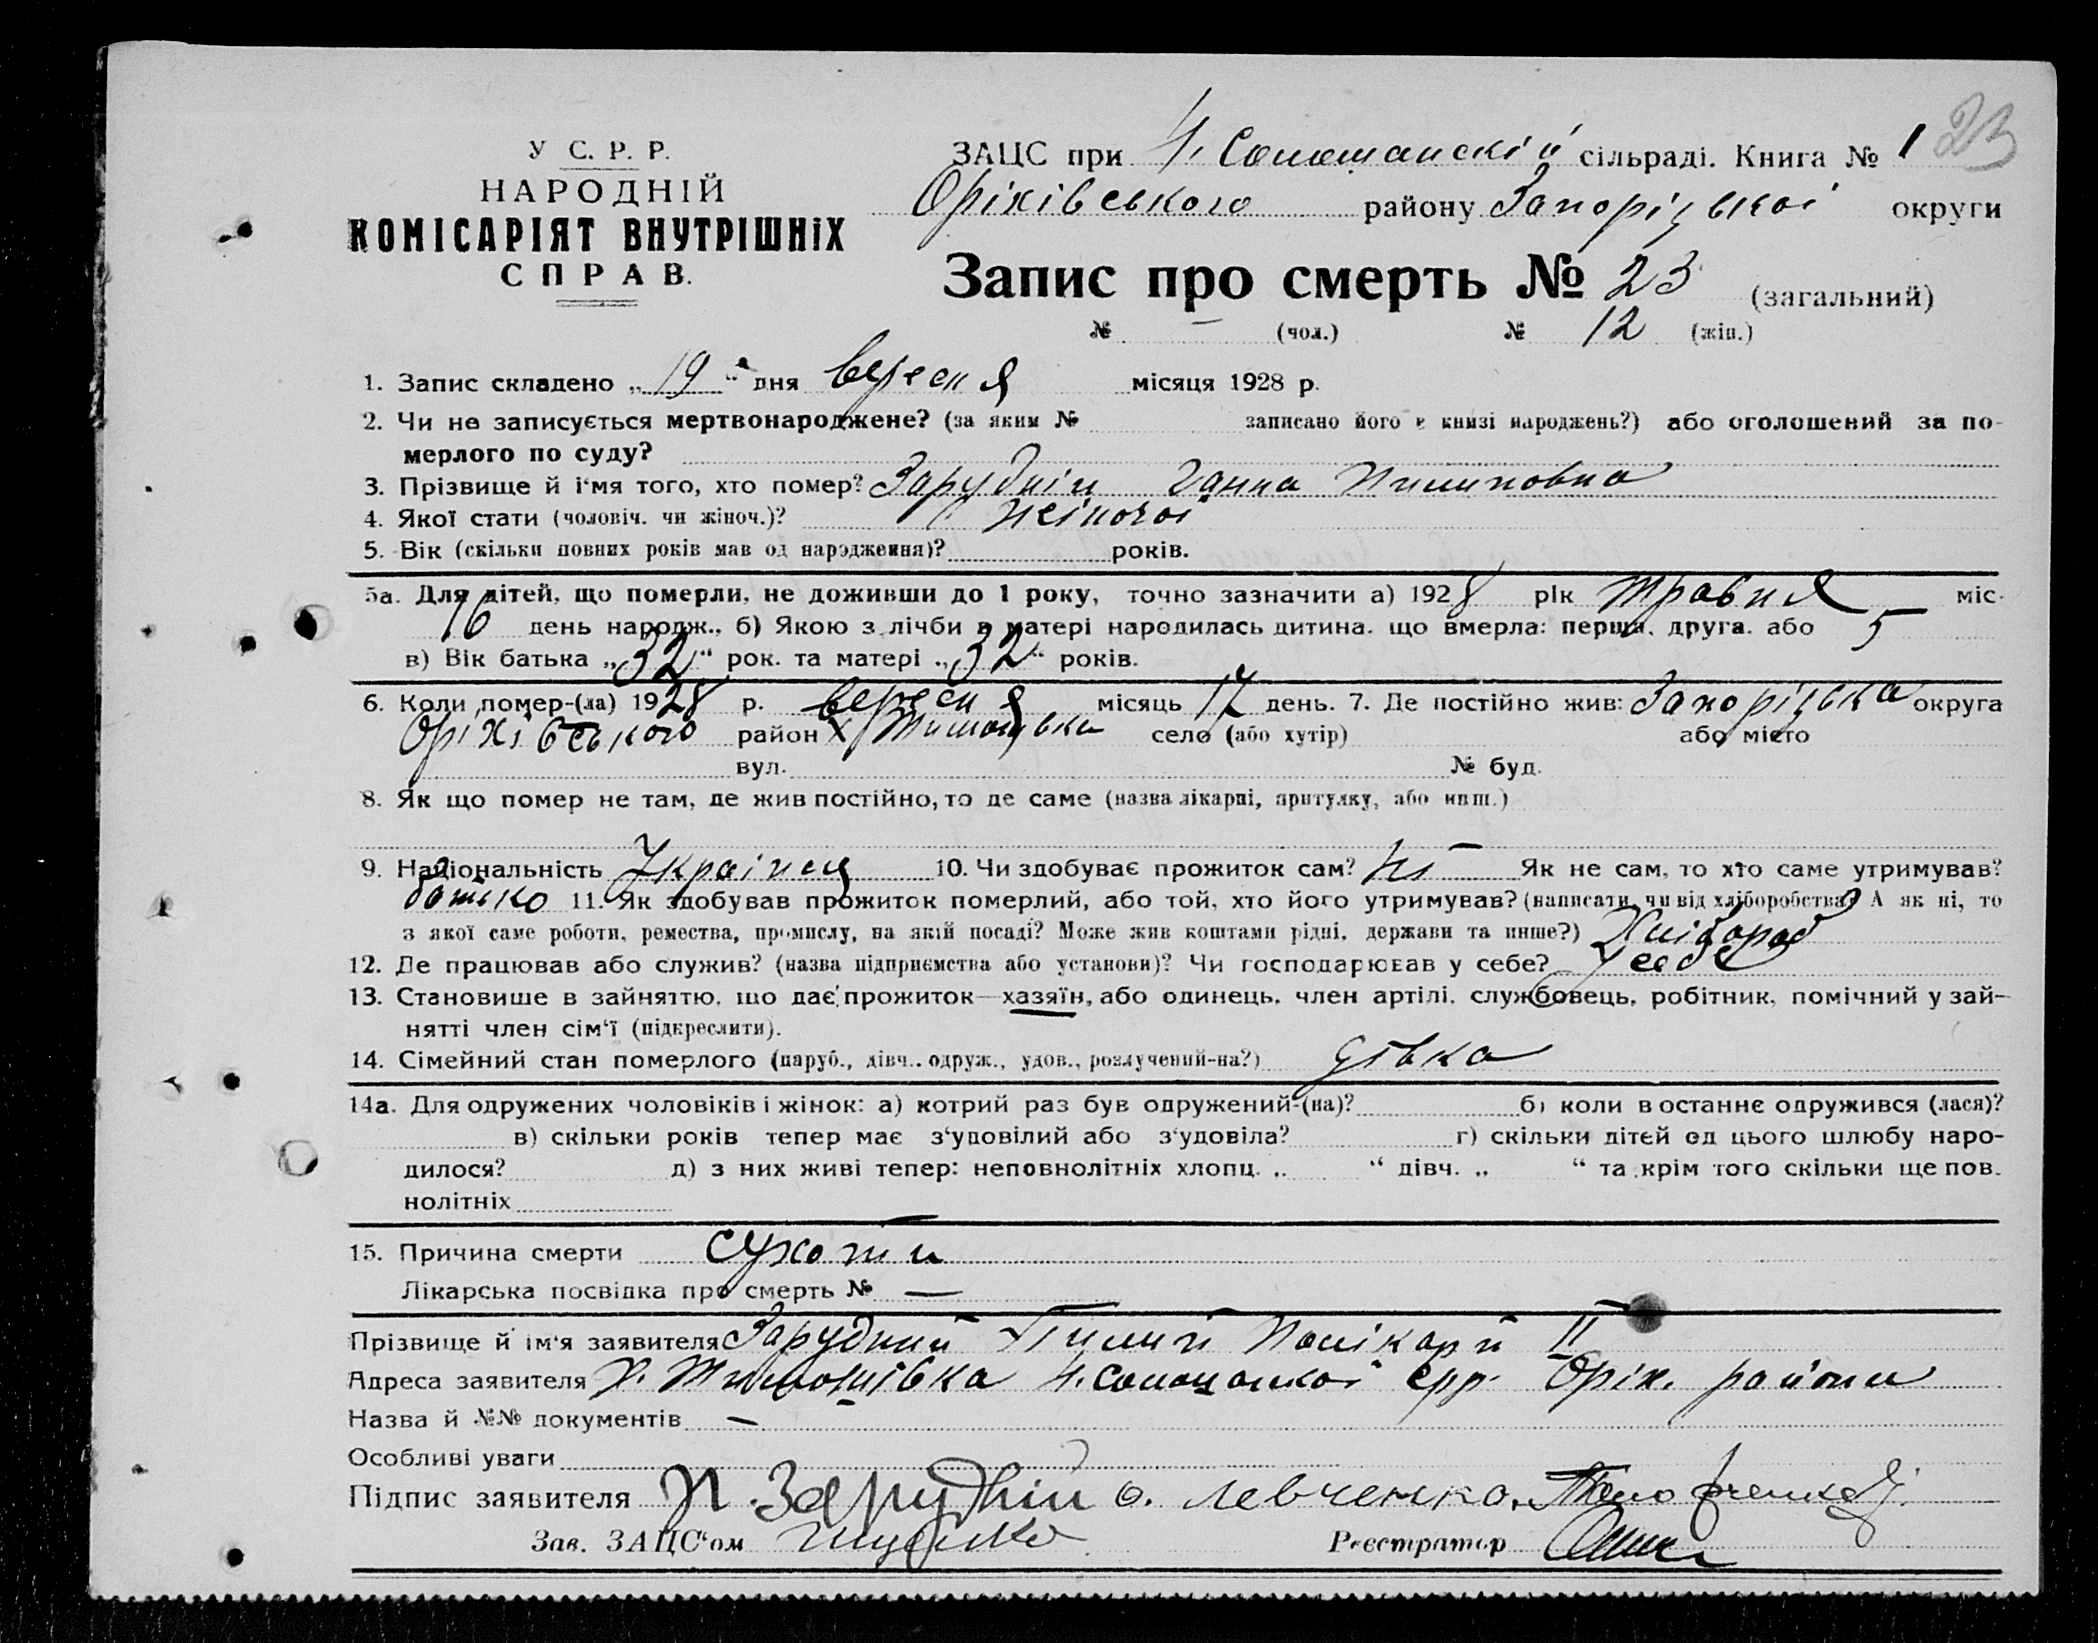 У С. Р. Р.
НАРОДНІЙ
КОМІСАРІЯТ ВНУТРІШНіХ
СПРАВ.
23
ЗАЦС при сільраді. Книга № 1
Оріхівського району Запоріцькоі округи
Запис про смерть № 23 (загальний)
№ — (чол.) № 12 (жін.)
1. Запис складено „19“ дня вересня місяця 1928 р.
2. Чи не записується мертвонароджене? (за яким № записано його в книзі народжень?) або оголошений за по-
мерлого по суду?
3. Прізвище й і'мя того, хто помер? Зарудній Ганна Пилиповна
4. Якої стати (чоловіч. чи жіноч.)? жіночоі
5. Вік (скільки повних років мав од народження)? років.
5а. Для дітей, що померли, не доживши до 1 року, точно зазначити а) 1928 рік травня міс.
16 день народж., б) Якою з лічби в матері народилась дитина, що вмерла: перша, друга, або 5
в) Вік батька „32“ рок. та матері „32“ років.
6. Коли помер-(ла) 1928 р. вересня місяць 17 день. 7. Де постійно жив: Запоріцька округа
Оріхівського район х. село (або хутір) або місто
вул. № буд.
8. Як що помер не там, де жив постійно, то де саме (назва лікарні, притулку, або инш.)
9. Національність Украінця 10. Чи здобуває прожиток сам? ні Як не сам, то хто саме утримував?
батько 11. Як здобував прожиток померлий, або той, хто його утримував? (написати, чи від хліборобства? А як ні, то
з якої саме роботи, ремества, промислу, на якій посаді? Може жив коштами рідні, держави та инше?) Хлібороб
12. Де працював або служив? (назва підприємства або установи)? Чи господарював у себе? У себе
13. Становише в зайняттю, що дає прожиток—хазяїн, або одинець, член артілі, службовець, робітник, помічний у зай-
нятті член сім'ї (підкреслити).
14. Сімейний стан померлого (паруб., дівч.. одруж., удов., розлучений-на?) дівка
14а. Для одружених чоловіків і жінок: а) котрий раз був одружений-(на)? б) коли в останнє одружився (лася)?
в) скільки років тепер має з'уповілий або з'удовіла? г) скільки дітей од цього шлюбу наро-
дилося? д) з них живі тепер: неповнолітніх хлопц. „ “ дівч. „ “ та крім того скільки ще пов.
нолітніх
15. Причина смерти сухоти
Лікарська посвідка про смерть № —
Прізвище й ім'я заявителя Зарудний Пилип Полікарп II
Адреса заявителя Х. Оріх. району
Назва й №№ документів —
Особливі уваги
Підпис заявителя П. Зарудній О. Левченко.
Зав. ЗАЦС'ом Реєстратор